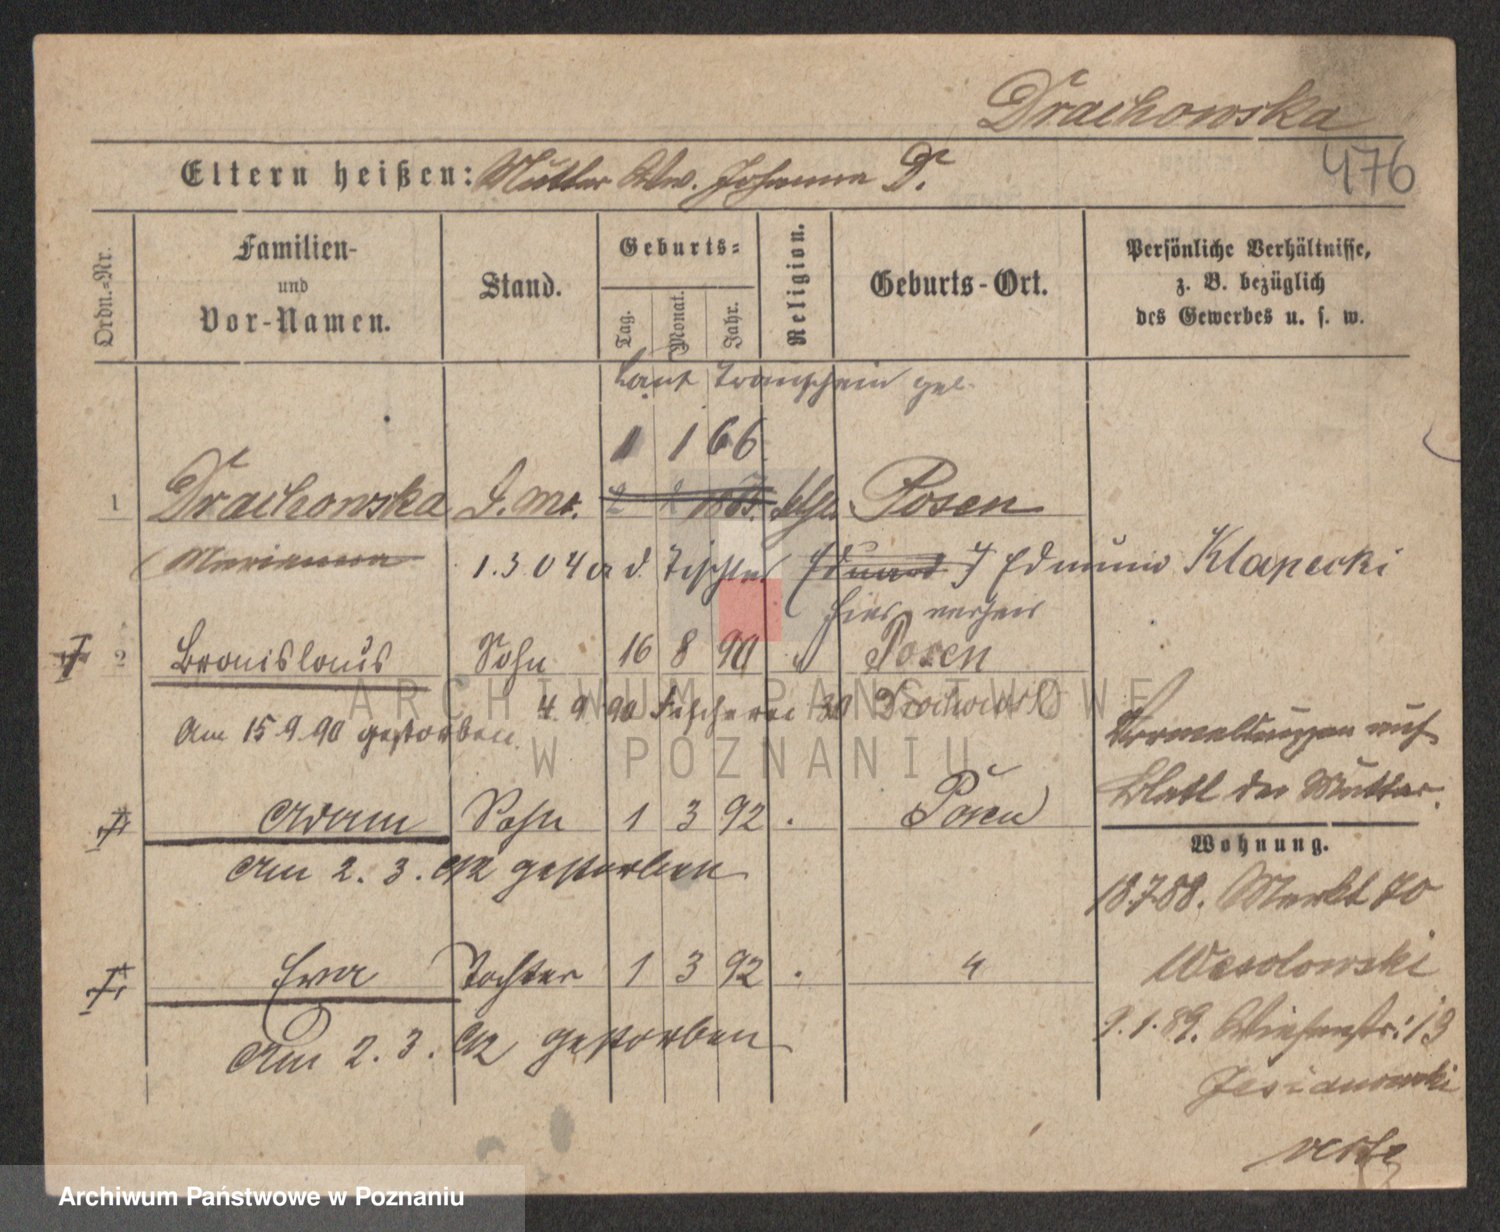 Drachowska
476
Eltern heißen: Mutter Ww. Johanna D.
Ordn.-Nr.
Familien- und Vor-Namen.
Stand.
Geburts-
Tag.
Monat.
Jahr.
Religion.
Geburts-Ort.
Persönliche Verhältnisse, z. B. bezüglich des Gewerbes u. s. w.
laut Trauschein geb.
1 1 66
1 Drachowska Posen
Marianna 1.3.04 a d. Tischler Eduard Edmund Klapecki
hier verheir
2 Bronislaus Sohn 16 8 90 Posen
4.9.90 Fischerei 30 Drachowsk
Am 15.9.90 gestorben.
Vermeldungen auf
Blatt der Mutter.
Adam Sohn 1 3 92 Posen
Am 2. 3. 92 gestorben
Wohnung.
18.7.88. Markt 70
Wesolowski
Eva Tochter 1 3 92
Am 2. 3. 92 gestorben
9.1.89. Wiesenstr. 13
Jesianowski
verte
ARCHIWUM PAŃSTWOWE
W POZNANIU
Archiwum Państwowe w Poznaniu